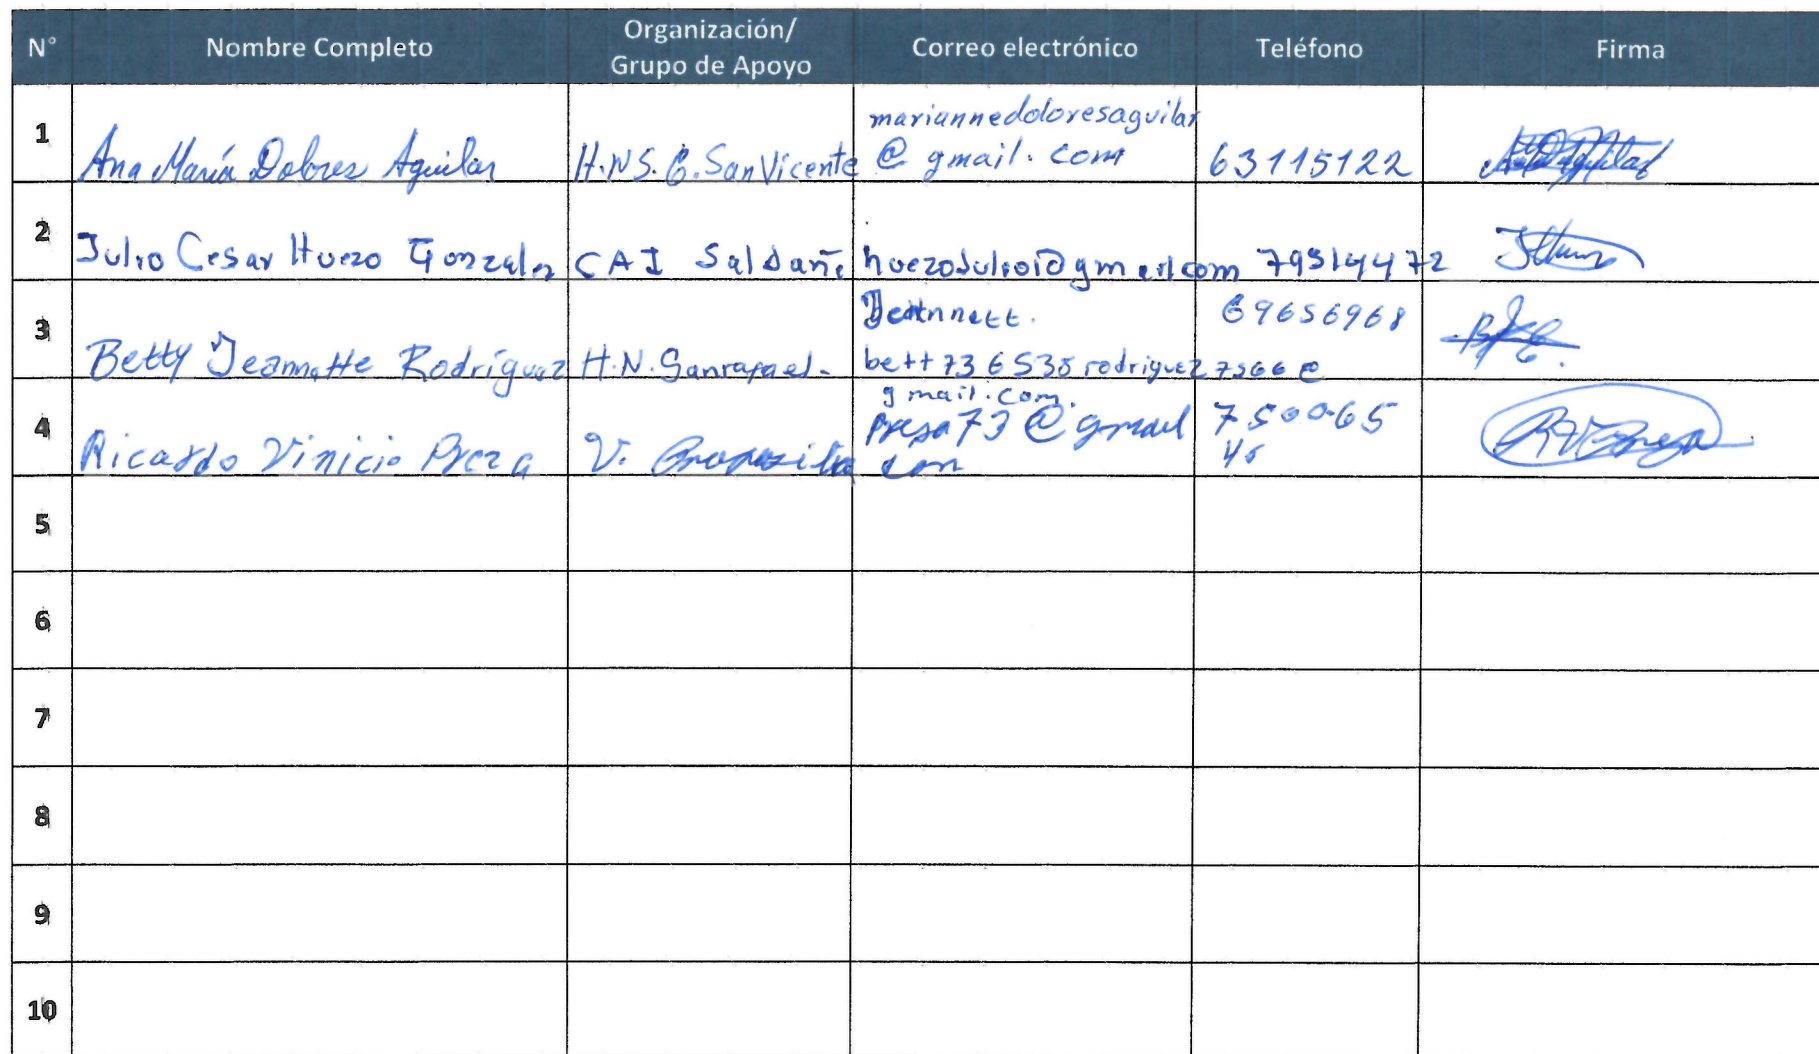 N° Nombre Completo Organización/ Grupo de Apoyo Correo electrónico Teléfono Firma
1 Ana María Dolores Aguilar H.N.S.G. San Vicente mariannedoloresaguilar
@ gmail. com 63115122
2 Julio Cesar Huezo Gonzalez CAI Saldaña 79514472
3 Betty Jeannette Rodríguez H.N. Sanrafael. Jeannett. 69656968
bett736538rodriguez7566@
gmail.com.
4 Ricardo Vinicio Preza V. preza73@gmail 750065
com 45
5
6
7
8
9
10